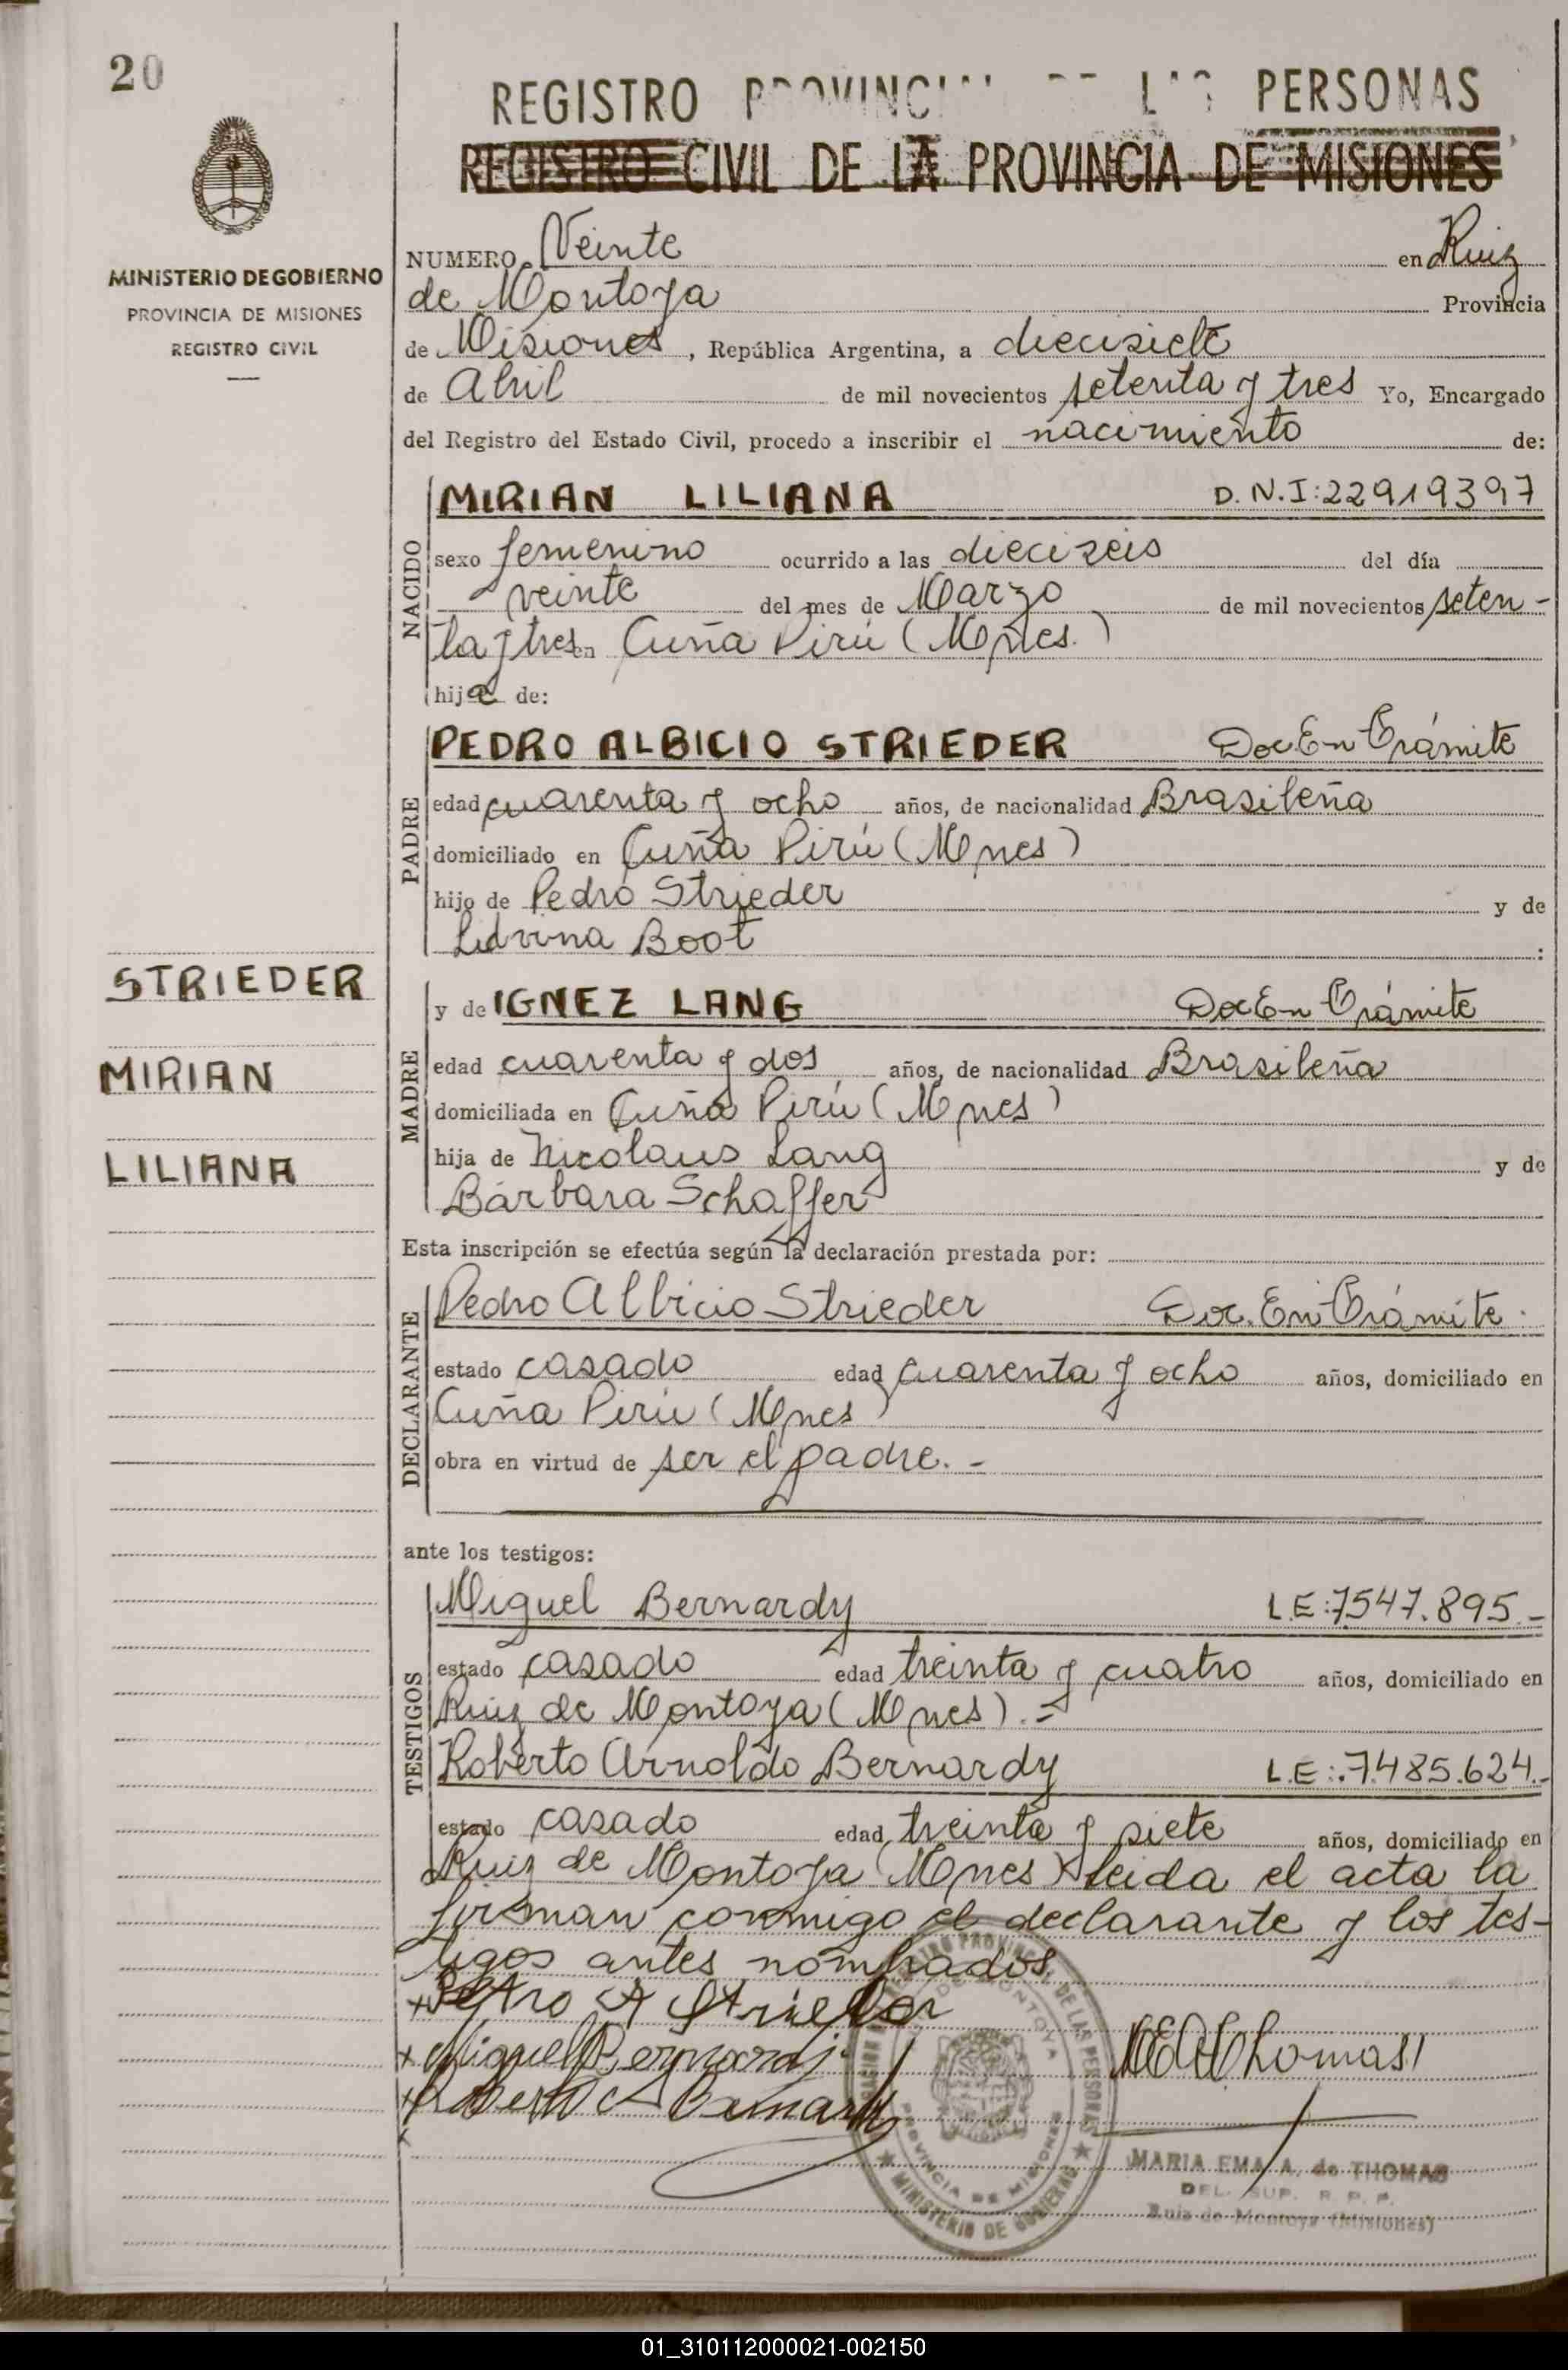 20
REGISTRO PROVINCIAL DE LAS PERSONAS
REGISTRO CIVIL DE LA PROVINCIA DE MISIONES
MINISTERIO DE GOBIERNO
PROVINCIA DE MISIONES
REGISTRO CIVIL
NUMERO Veinte en Ruiz
de Montoya Provincia
de Misiones, República Argentina, a diecisiete
de Abril de mil novecientos setenta y tres Yo, Encargado
del Registro del Estado Civil, procedo a inscribir el nacimiento de:
NACIDO
MIRIAN LILIANA D.N.I:22919397
sexo femenino ocurrido a las dieciseis del día
veinte del mes de Marzo de mil novecientos seten-
ta y tres en Cuña Pirú (Mnes.)
hija de:
PADRE
PEDRO ALBICIO STRIEDER Doc En Trámite
edad cuarenta y ocho años, de nacionalidad Brasileña
domiciliado en Cuña Pirú (Mnes)
hijo de Pedro Strieder y de
Ludvina Boot :
STRIEDER
MIRIAN
LILIANA
MADRE
y de IGNEZ LANG Doc En Trámite
edad cuarenta y dos años, de nacionalidad Brasileña
domiciliada en Cuña Pirú (Mnes)
hija de Nicolaus Lang y de
Bárbara Schaffer
Esta inscripción se efectúa según la declaración prestada por:
DECLARANTE
Pedro Albicio Strieder Doc. En Trámite.
estado casado edad cuarenta y ocho años, domiciliado en
Cuña Pirú (Mnes)
obra en virtud de ser el padre.-
ante los testigos:
TESTIGOS
Miguel Bernardy L.E:7547.895.-
estado casado edad treinta y cuatro años, domiciliado en
Ruiz de Montoya (Mnes).=
Roberto Arnoldo Bernardy L.E:.7.485.624.-
estado casado edad treinta y siete años, domiciliado en
Ruiz de Montoya (Mnes) leida el acta la
firman conmigo el declarante y los tes-
tigos antes nombrados
+Petro A Strieder
+Miguel Bernardy
+Roberto A Bernardy
MEAThomas
PROVINCIA DE MISIONES
MINISTERIO DE GOBIERNO
MARIA EMA A. de THOMAS
DEL. SUP. R. P. P.
Ruiz de Montoya (Misiones)
01_310112000021-002150